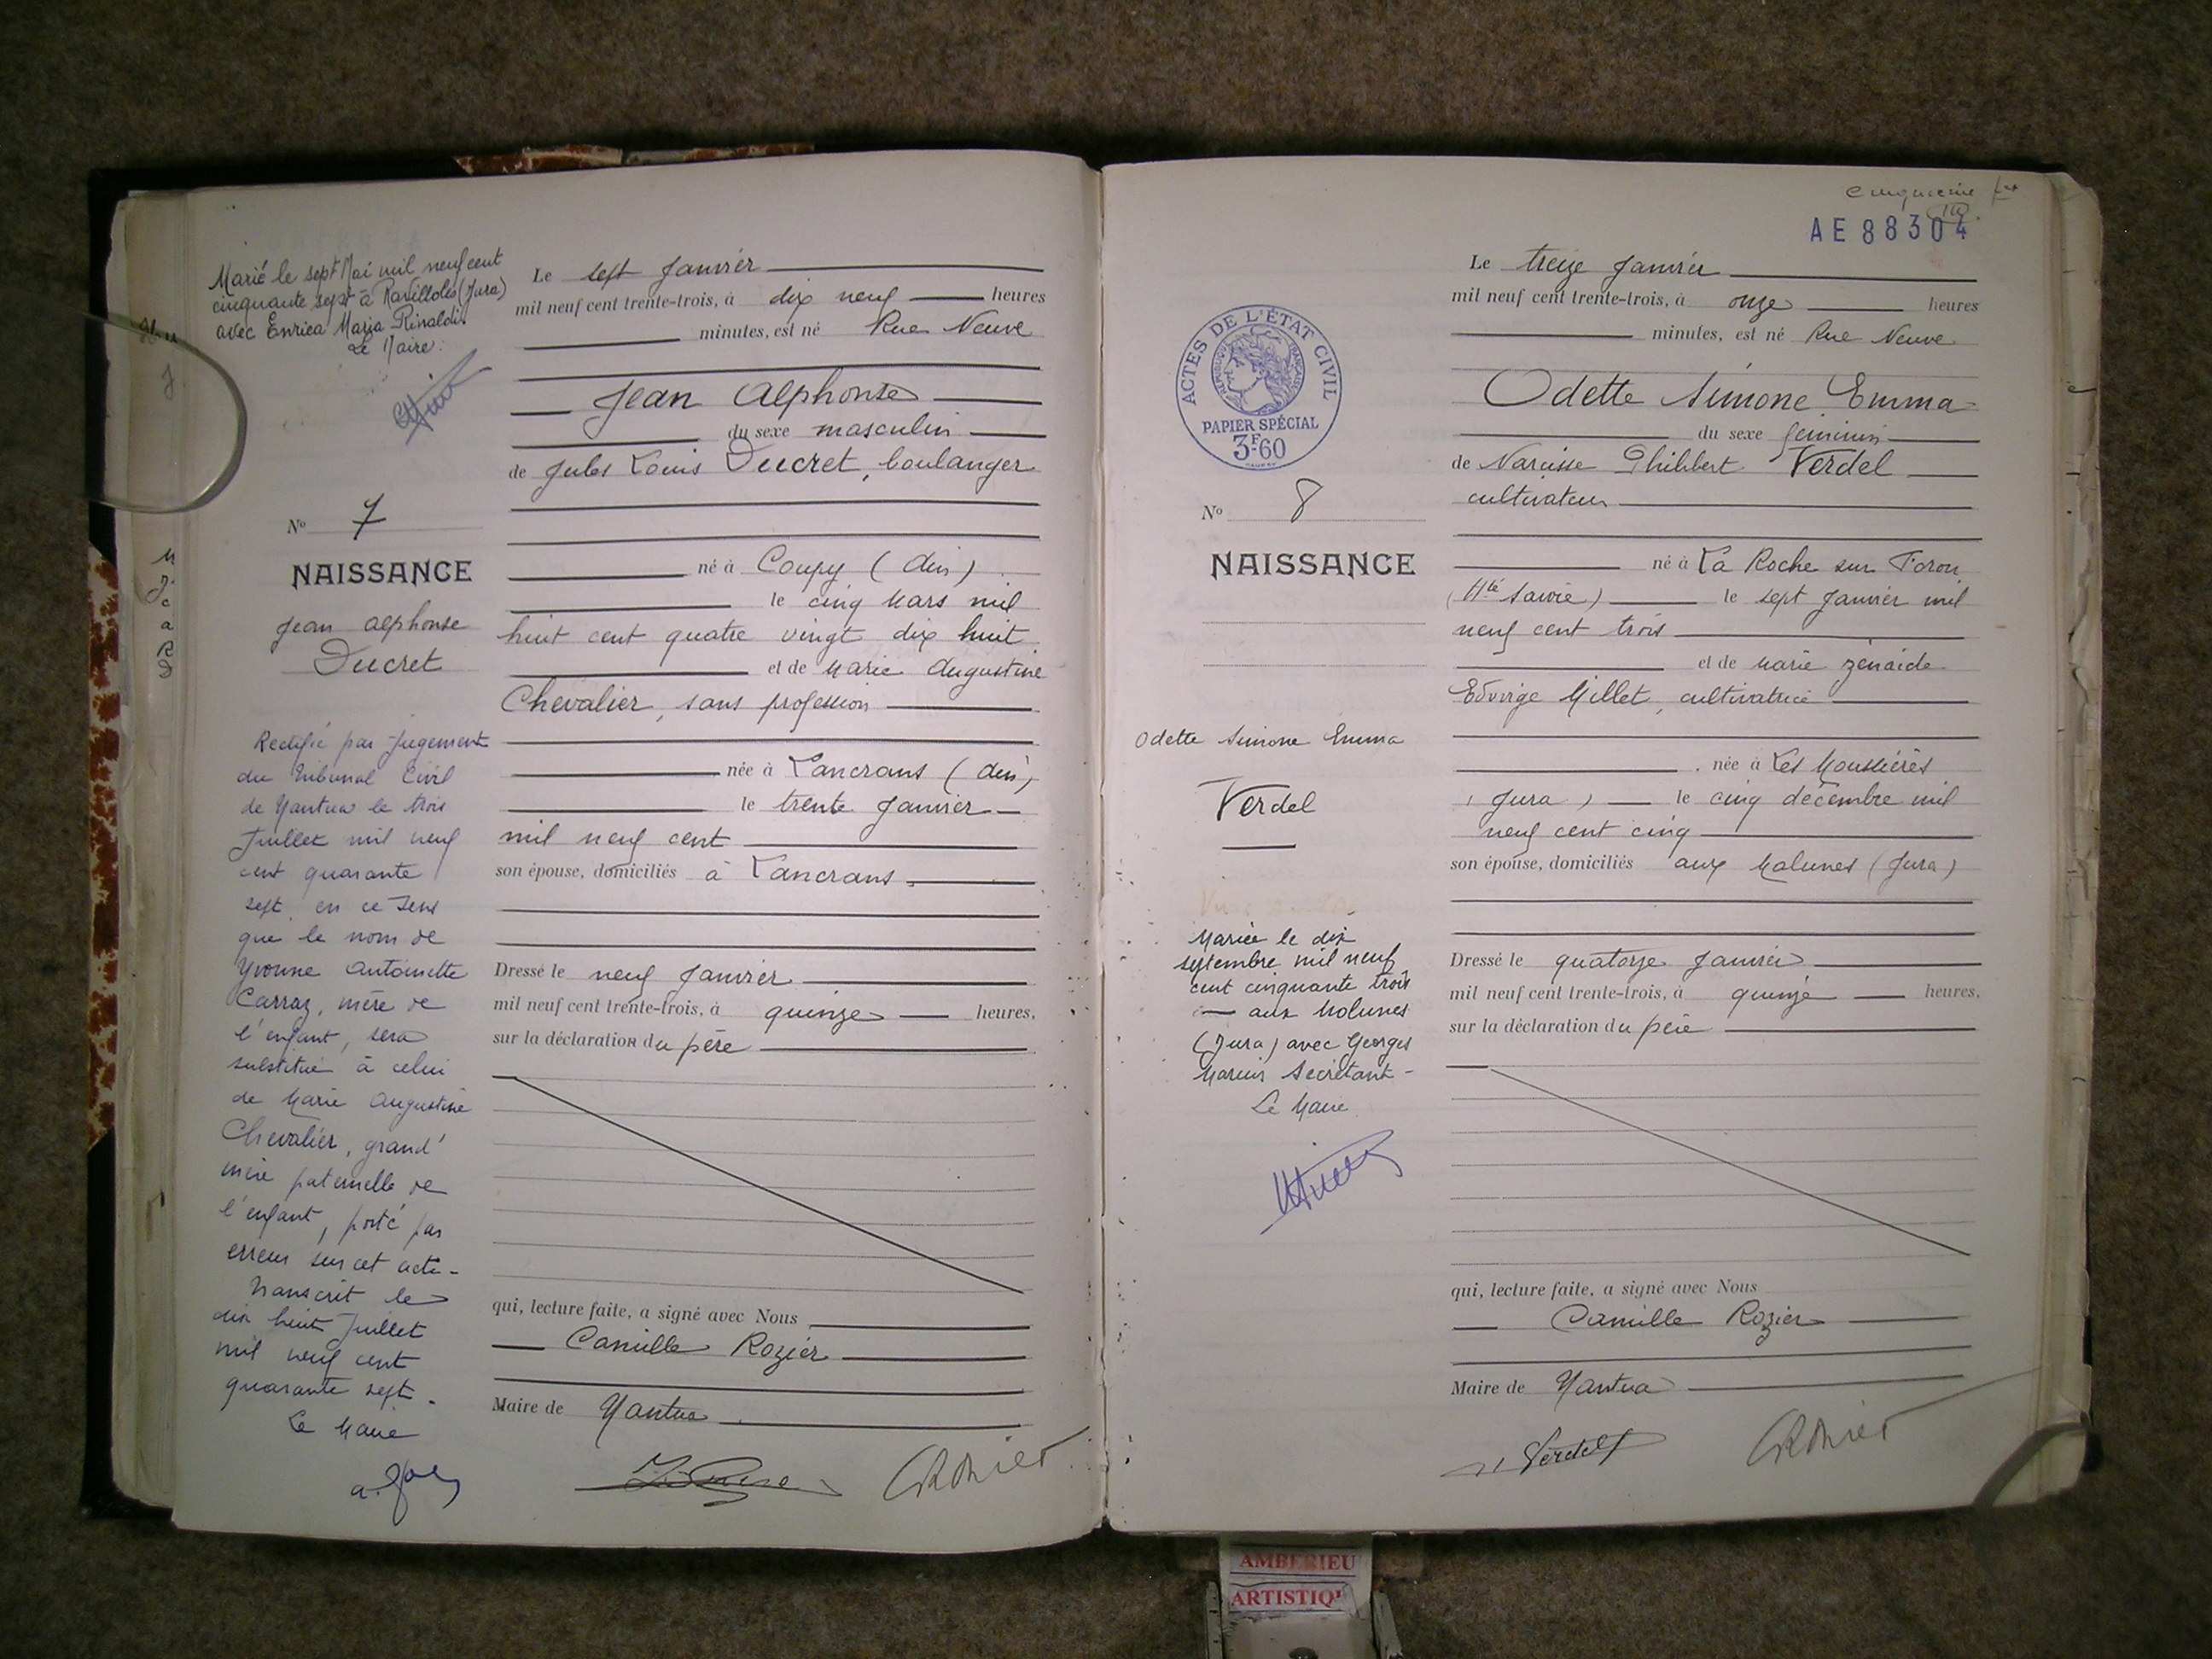 Marié le sept Mai mil neuf cent
cinquante sept à Ravilloles (Jura)
avec Enrica Maria Rinaldi.
Le Maire:
N° 7
NAISSANCE
Jean Alphonse
Ducret
Rectifié par Jugement
du Tribunal Civil
de Nantua le trois
Juillet mil neuf
cent quarante
sept, en ce sens
que le nom de
Yvonne Antoinette
Carraz, mère de
l'enfant, sera
substitué à celui
de Marie Augustine
Chevalier, grand'
mère paternelle de
l'enfant, porté par
erreur sur cet acte -
Transcrit le
dix huit Juillet
mil neuf cent
quarante sept.
Le Maire
Le sept Janvier
mil neuf cent trente-trois, à dix neuf heures
minutes, est né Rue Neuve
Jean Alphonse
du sexe masculin
de Jules Louis Ducret, boulanger
né à Coupy (Ain)
le cinq Mars mil
huit cent quatre vingt dix huit
et de Marie Augustine
Chevalier, sans profession
née à Lancrans (Ain)
le trente Janvier
mil neuf cent
son épouse, domiciliés à Lancrans.
Dressé le neuf Janvier
mil neuf cent trente-trois, à quinze heures,
sur la déclaration du père
qui, lecture faite, a signé avec Nous
Camille Rozier
Maire de Nantua
CRozier
cinquième
AE 88304
ACTES DE L'ÉTAT CIVIL
RÉPUBLIQUE FRANÇAISE
PAPIER SPÉCIAL
3F60
N° 8
NAISSANCE
Odette Simone Emma
Verdel
Mariée le dix
septembre mil neuf
cent cinquante trois
aux Molunes
(Jura) avec Georges
Marius Secrétant -
Le Maire
Le treize Janvier
mil neuf cent trente-trois, à onze heures
minutes, est né Rue Neuve
Odette Simone Emma
du sexe féminin
de Narcisse Philibert Verdel
cultivateur
né à La Roche sur Foron
(Hte Savoie) le sept Janvier mil
neuf cent trois
et de Marie Zénaïde
Edvirge Millet, cultivatrice
née à Les Moussières
(Jura) le cinq décembre mil
neuf cent cinq
son épouse, domiciliés aux Molunes (Jura)
Dressé le quatorze Janvier
mil neuf cent trente-trois, à quinze heures,
sur la déclaration du père
qui, lecture faite, a signé avec Nous
Camille Rozier
Maire de Nantua
N Verdel
CRozier
AMBERIEU
ARTISTIQ